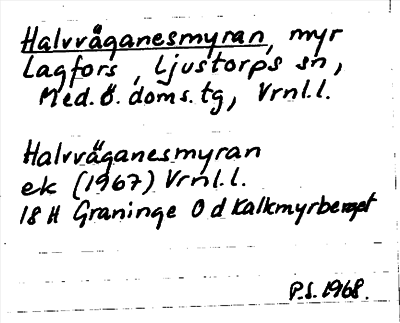 Halvvåganesmyran, myr
Lagfors, Ljustorps sn,
Med. Ö. doms. tg, Vrnl. l.
Halvväganesmyran
ek (1967) Vrnl. l.
18 H Graninge O d Kalkmyrberget
P.S. 1968.